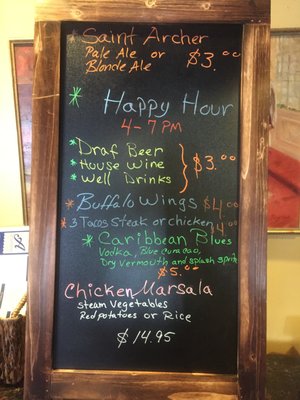 * Saint Archer
Pale Ale or $3.00
Blonde Ale
* Happy Hour
4-7 PM
* Draf Beer
* House Wine } $3.00
* Well Drinks
* Buffalo Wings $4.00
* 3 Tacos Steak or chicken 4.00
* Caribbean Blues
Vodka, Blue Curacao,
Dry Vermouth and Splash Sprite
$5.00
Chicken Marsala
Steam Vegetables
Red potatoes or Rice
$14.95